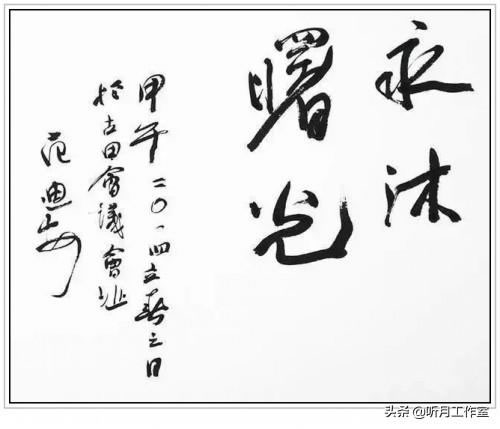 永沐
曙光
甲午二〇一四立春之日
於古田會議會址
范迪安
头条 @听月工作室